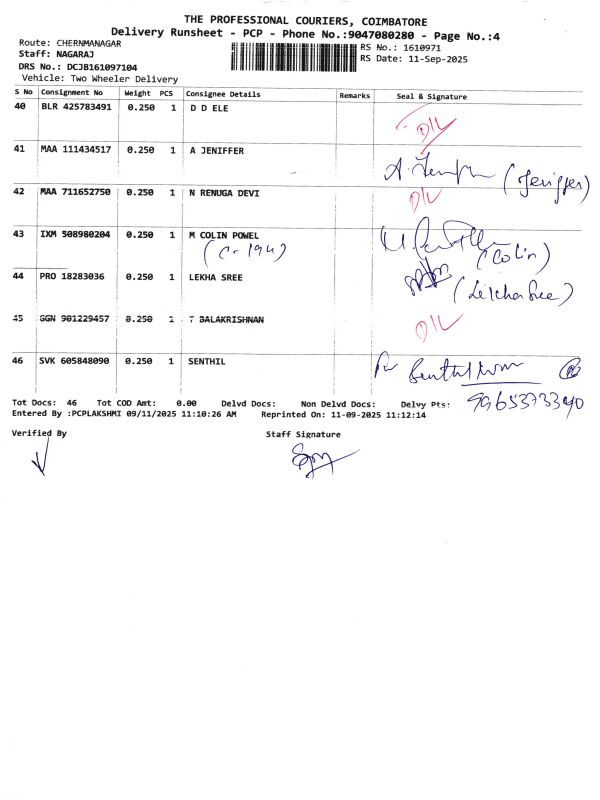 THE PROFESSIONAL COURIERS, COIMBATORE
Delivery Runsheet - PCP - Phone No.:9047080280 - Page No.:4
Route: CHERNMANAGAR
Staff: NAGARAJ
DRS No.: DCJB161097104
Vehicle: Two Wheeler Delivery
RS No.: 1610971
RS Date: 11-Sep-2025
S No Consignment No Weight PCS Consignee Details Remarks Seal & Signature
40 BLR 425783491 0.250 1 D D ELE D/L
41 MAA 111434517 0.250 1 A JENIFFER A. (Jeniffer)
42 MAA 711652750 0.250 1 N RENUGA DEVI D/L
43 IXM 508980204 0.250 1 M COLIN POWEL (Colin)
(C-194)
44 PRO 18283036 0.250 1 LEKHA SREE (LekhaSree)
45 GGN 901229457 0.250 1 T BALAKRISHNAN D/L
46 SVK 605848090 0.250 1 SENTHIL
Tot Docs: 46 Tot COD Amt: 0.00 Delvd Docs: Non Delvd Docs: Delvy Pts: 9965373390
Entered By :PCPLAKSHMI 09/11/2025 11:10:26 AM Reprinted On: 11-09-2025 11:12:14
Verified By Staff Signature